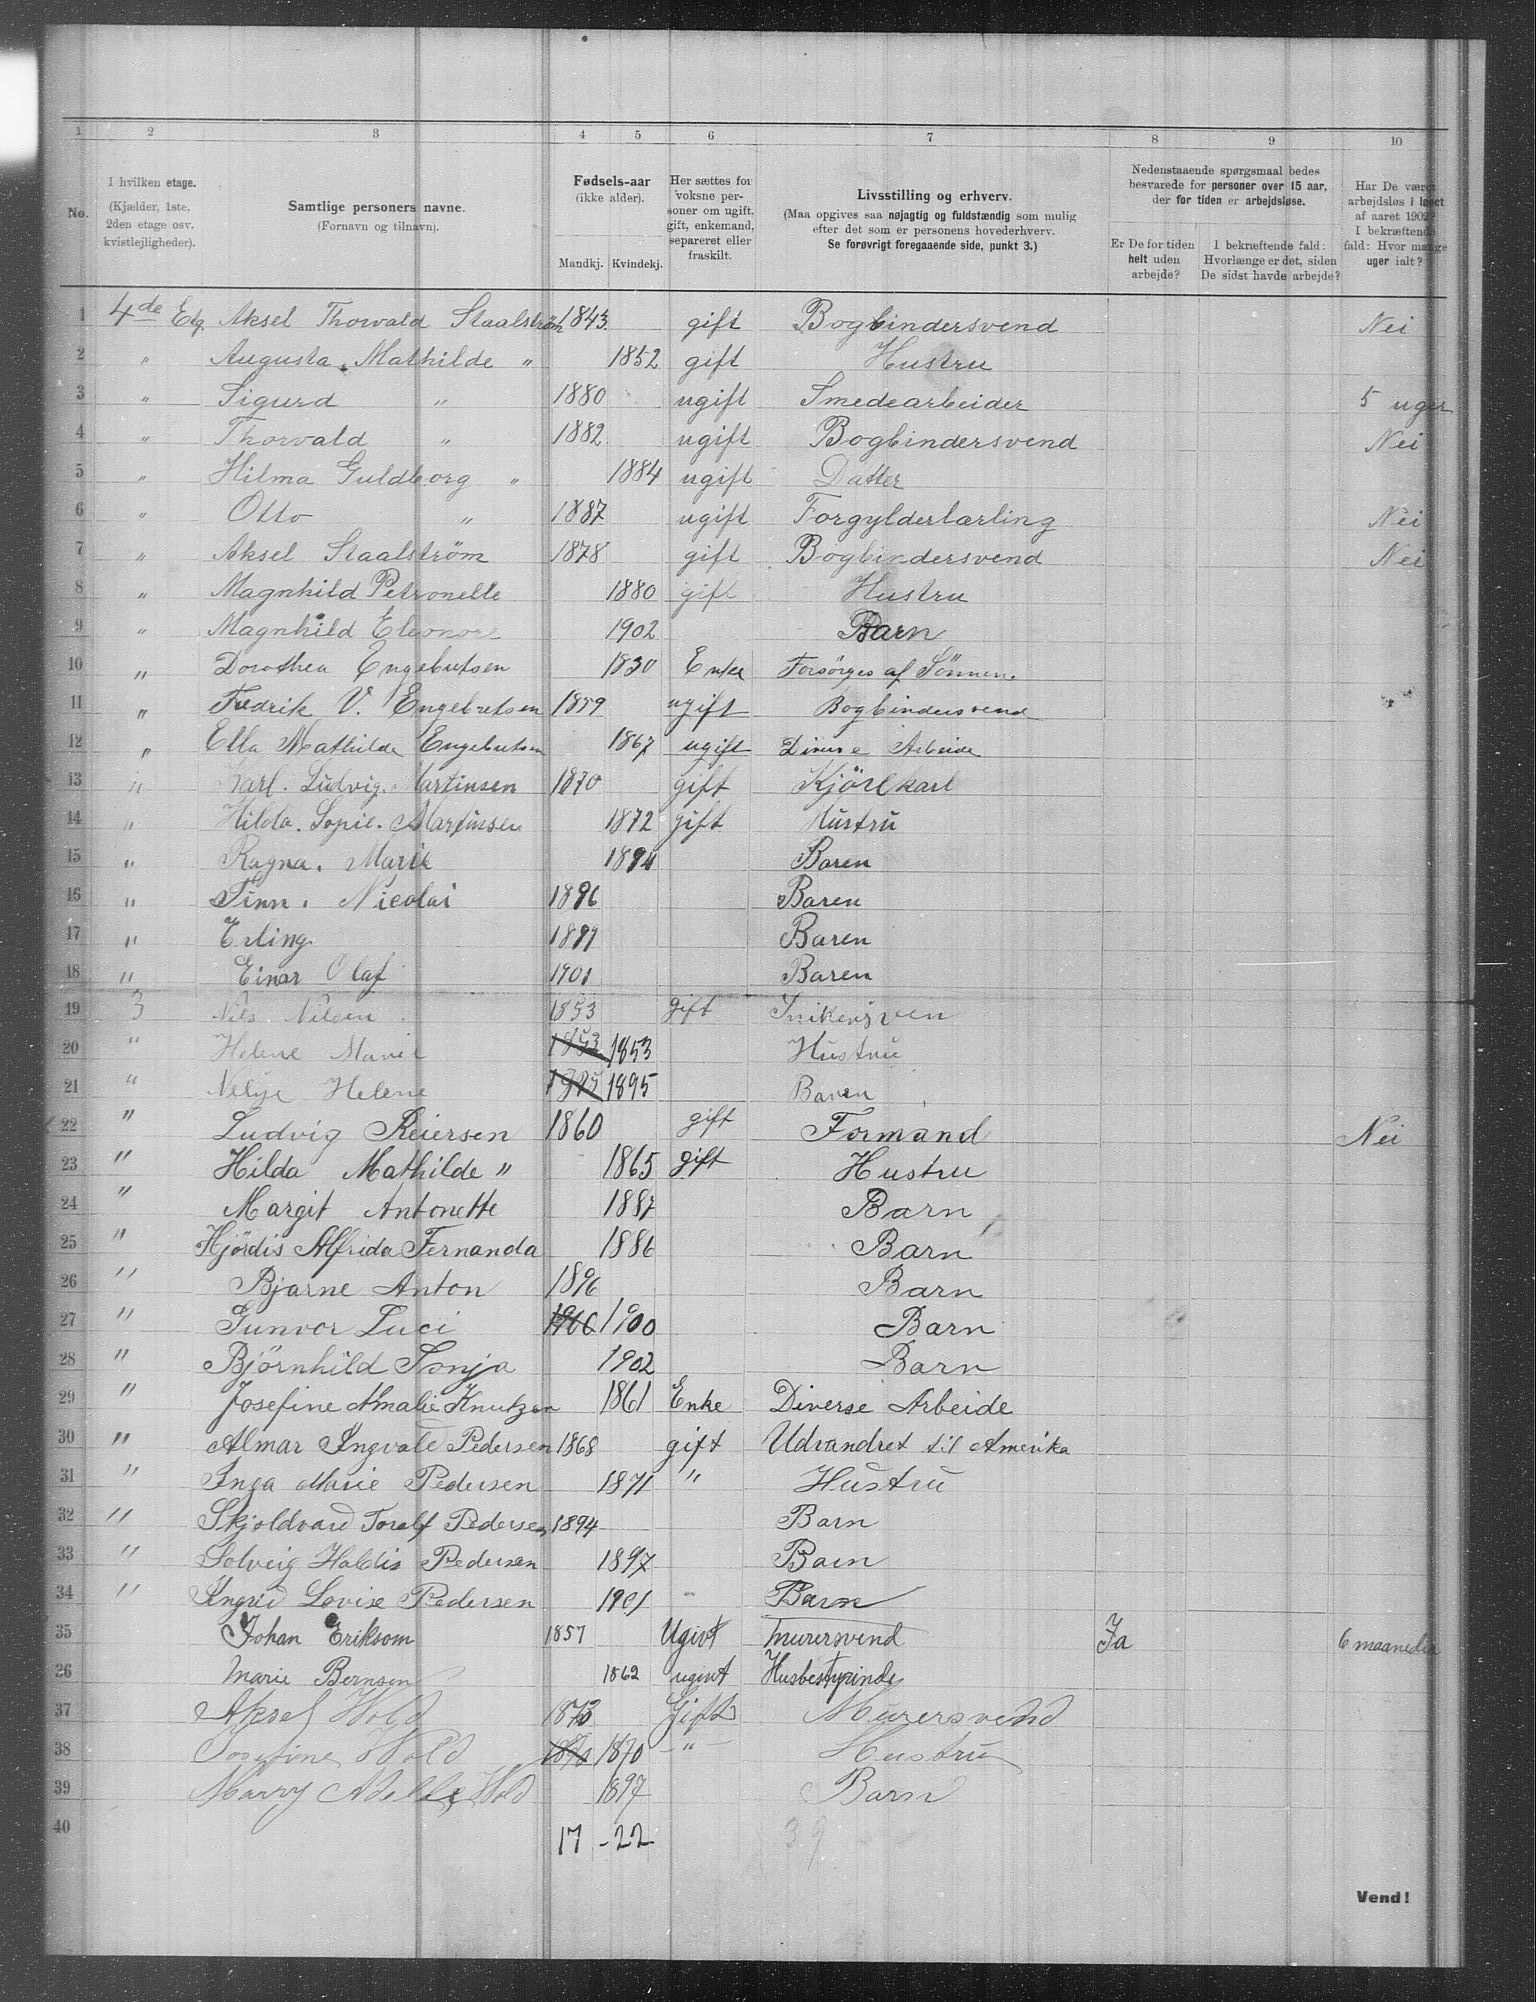 1 2 3 4 5 6 7 8 9 10
No. I hvilken etage. (Kjælder, 1ste. 2den etage osv. kvistlejligheder). Samtlige personers navne. (Fornavn og tilnavn). Fødsels-aar (ikke alder). Mandkj. Kvindekj. Her sættes for voksne personer om ugift, gift, enkemand, separeret eller fraskilt. Livsstilling og erhverv. (Maa opgives saa nøjagtig og fuldstændig som mulig efter det som er personens hovederhverv. Se forøvrigt foregaaende side, punkt 3.) Nedenstaaende spørgsmaal bedes besvarede for personer over 15 aar, der for tiden er arbejdsløse. Er De for tiden helt uden arbejde? I bekræftende fald: Hvorlænge er det, siden De sidst havde arbejde? Har De været arbejdsløs i løbet af aaret 1902? I bekræftende fald: Hvor mange uger ialt?
1 4de Etg. Aksel Thorvald Staalström 1843 gift Bogbindersvend Nei
2 " Augusta Mathilde " 1852 gift Hustru
3 " Sigurd " 1880 ugift Smedearbeider 5 uger
4 " Thorvald " 1882 ugift Bogbindersvend Nei
5 " Hilma Guldborg " 1884 ugift Datter
6 " Otto " 1887 ugift Forgylderlærling Nei
7 " Aksel Staalström 1878 gift Bogbindersvend Nei
8 " Magnhild Petronelle 1880 gift Hustru
9 " Magnhild Eleonore 1902 Barn
10 " Dorothea Engebretsen 1830 Enke Forsörges af Sönnen.
11 " Fredrik V. Engebretsen 1859 ugift Bogbindersvend
12 " Ella Mathilde Engebretsen 1867 ugift Diverse Arbeide
13 " Karl. Ludvig. Martinsen 1870 gift Kjörekarl
14 " Hilda. Sopie. Martinsen 1872 gift Hustru
15 " Ragna. Marie 1894 Baren
16 " Finn. Nicolai 1896 Baren
17 " Erling 1899 Baren
18 " Einar Olaf 1901 Baren
19 3 Nils Nilsen 1853 gift Snikersven
20 " Helene Marie 1853 1853 Hustru
21 " Helene 1895 1895 Baren
22 " Ludvig Reiersen 1860 gift Formand Nei
23 " Hilda Mathilde " 1865 gift Hustru
24 " Margit Antonette 1887 Barn
25 " Hjördis Alfrida Fernanda 1886 Barn
26 " Bjarne Anton 1896 Barn
27 " Gunvor Luci 1900 1900 Barn
28 " Björnhild Sonja 1902 Barn
29 " Josefine Amalie Knutzen 1861 Enke Diverse Arbeide
30 " Almar Ingvald Pedersen 1868 gift Udvandret til Amerika
31 " Inga Marie Pedersen 1871 " Hustru
32 " Skjoldvard Toralf Pedersen 1894 Barn
33 " Solveig Haldis Pedersen 1897 Barn
34 " Ingrid Lovise Pedersen 1901 Barn
35 Johan Eriksom 1857 Ugivt murersvend Ja 6 maaneder
26 Marie Bernsen 1862 ugivt Husbestyrinde
37 Aksel Hold 1873 Gift Murersvend
38 Josefine Hold 1870 1870 " Hustru
39 Marry Hold 1897 Barn
40
17 - 22 39
Vend!